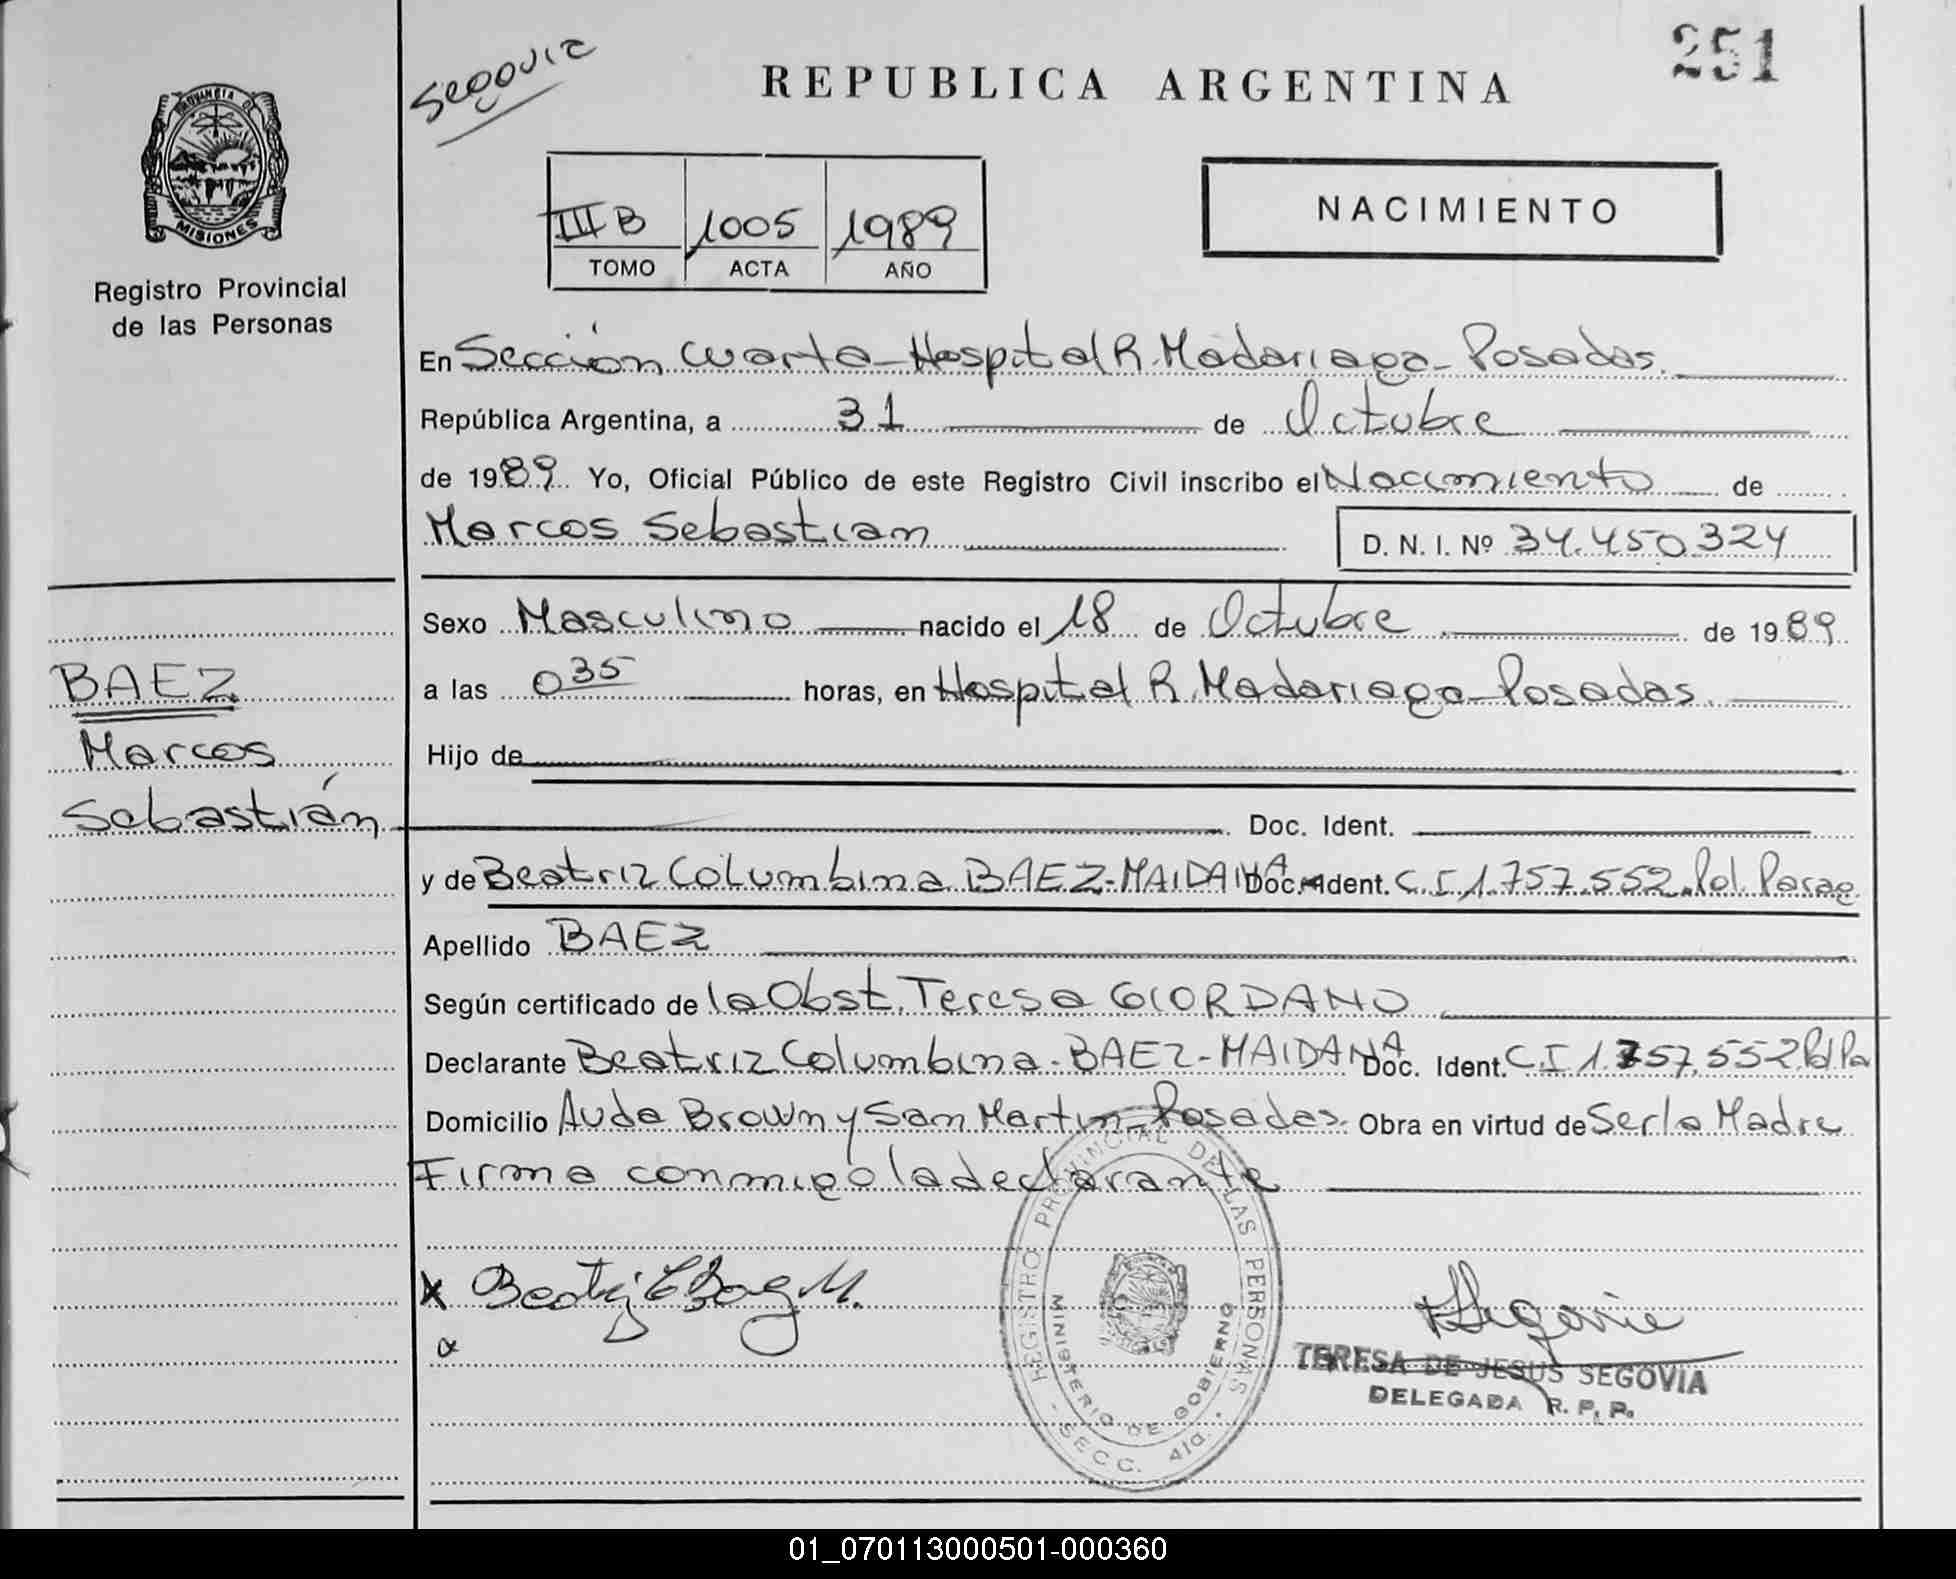 251
Segovia
REPUBLICA ARGENTINA
PROVINCIA DE
MISIONES
Registro Provincial
de las Personas
III B 1005 1989
TOMO ACTA AÑO
NACIMIENTO
En Sección Cuarta-Hospital R. Madariaga-Posadas.
República Argentina, a 31 de Octubre
de 1989. Yo, Oficial Público de este Registro Civil inscribo el Nacimiento de
Marcos Sebastian D. N. I. Nº 34.450.324
Sexo Masculino nacido el 18 de Octubre de 1989
a las 0 35 horas, en Hospital R. Madariaga-Posadas.
Hijo de
Doc. Ident.
y de Beatriz Columbina BAEZ-MAIDANA Doc. Ident. C.I 1.757.552.Pol. Parag
Apellido BAEZ
Según certificado de la Obst. Teresa GIORDANO
Declarante Beatriz Columbina-BAEZ-MAIDANA Doc. Ident. C.I 1.757.552 Pol Pa
Domicilio Avda Brown y San Martin-Posadas. Obra en virtud de Ser la Madre
Firma conmigo la declarante
BAEZ
Marcos
Sebastián
x Beatriz C Baez M.
REGISTRO PROVINCIAL DE LAS PERSONAS
MINISTERIO DE GOBIERNO
- SECC. 4ta. -
Segovia
TERESA DE JESUS SEGOVIA
DELEGADA R. P. P.
01_070113000501-000360